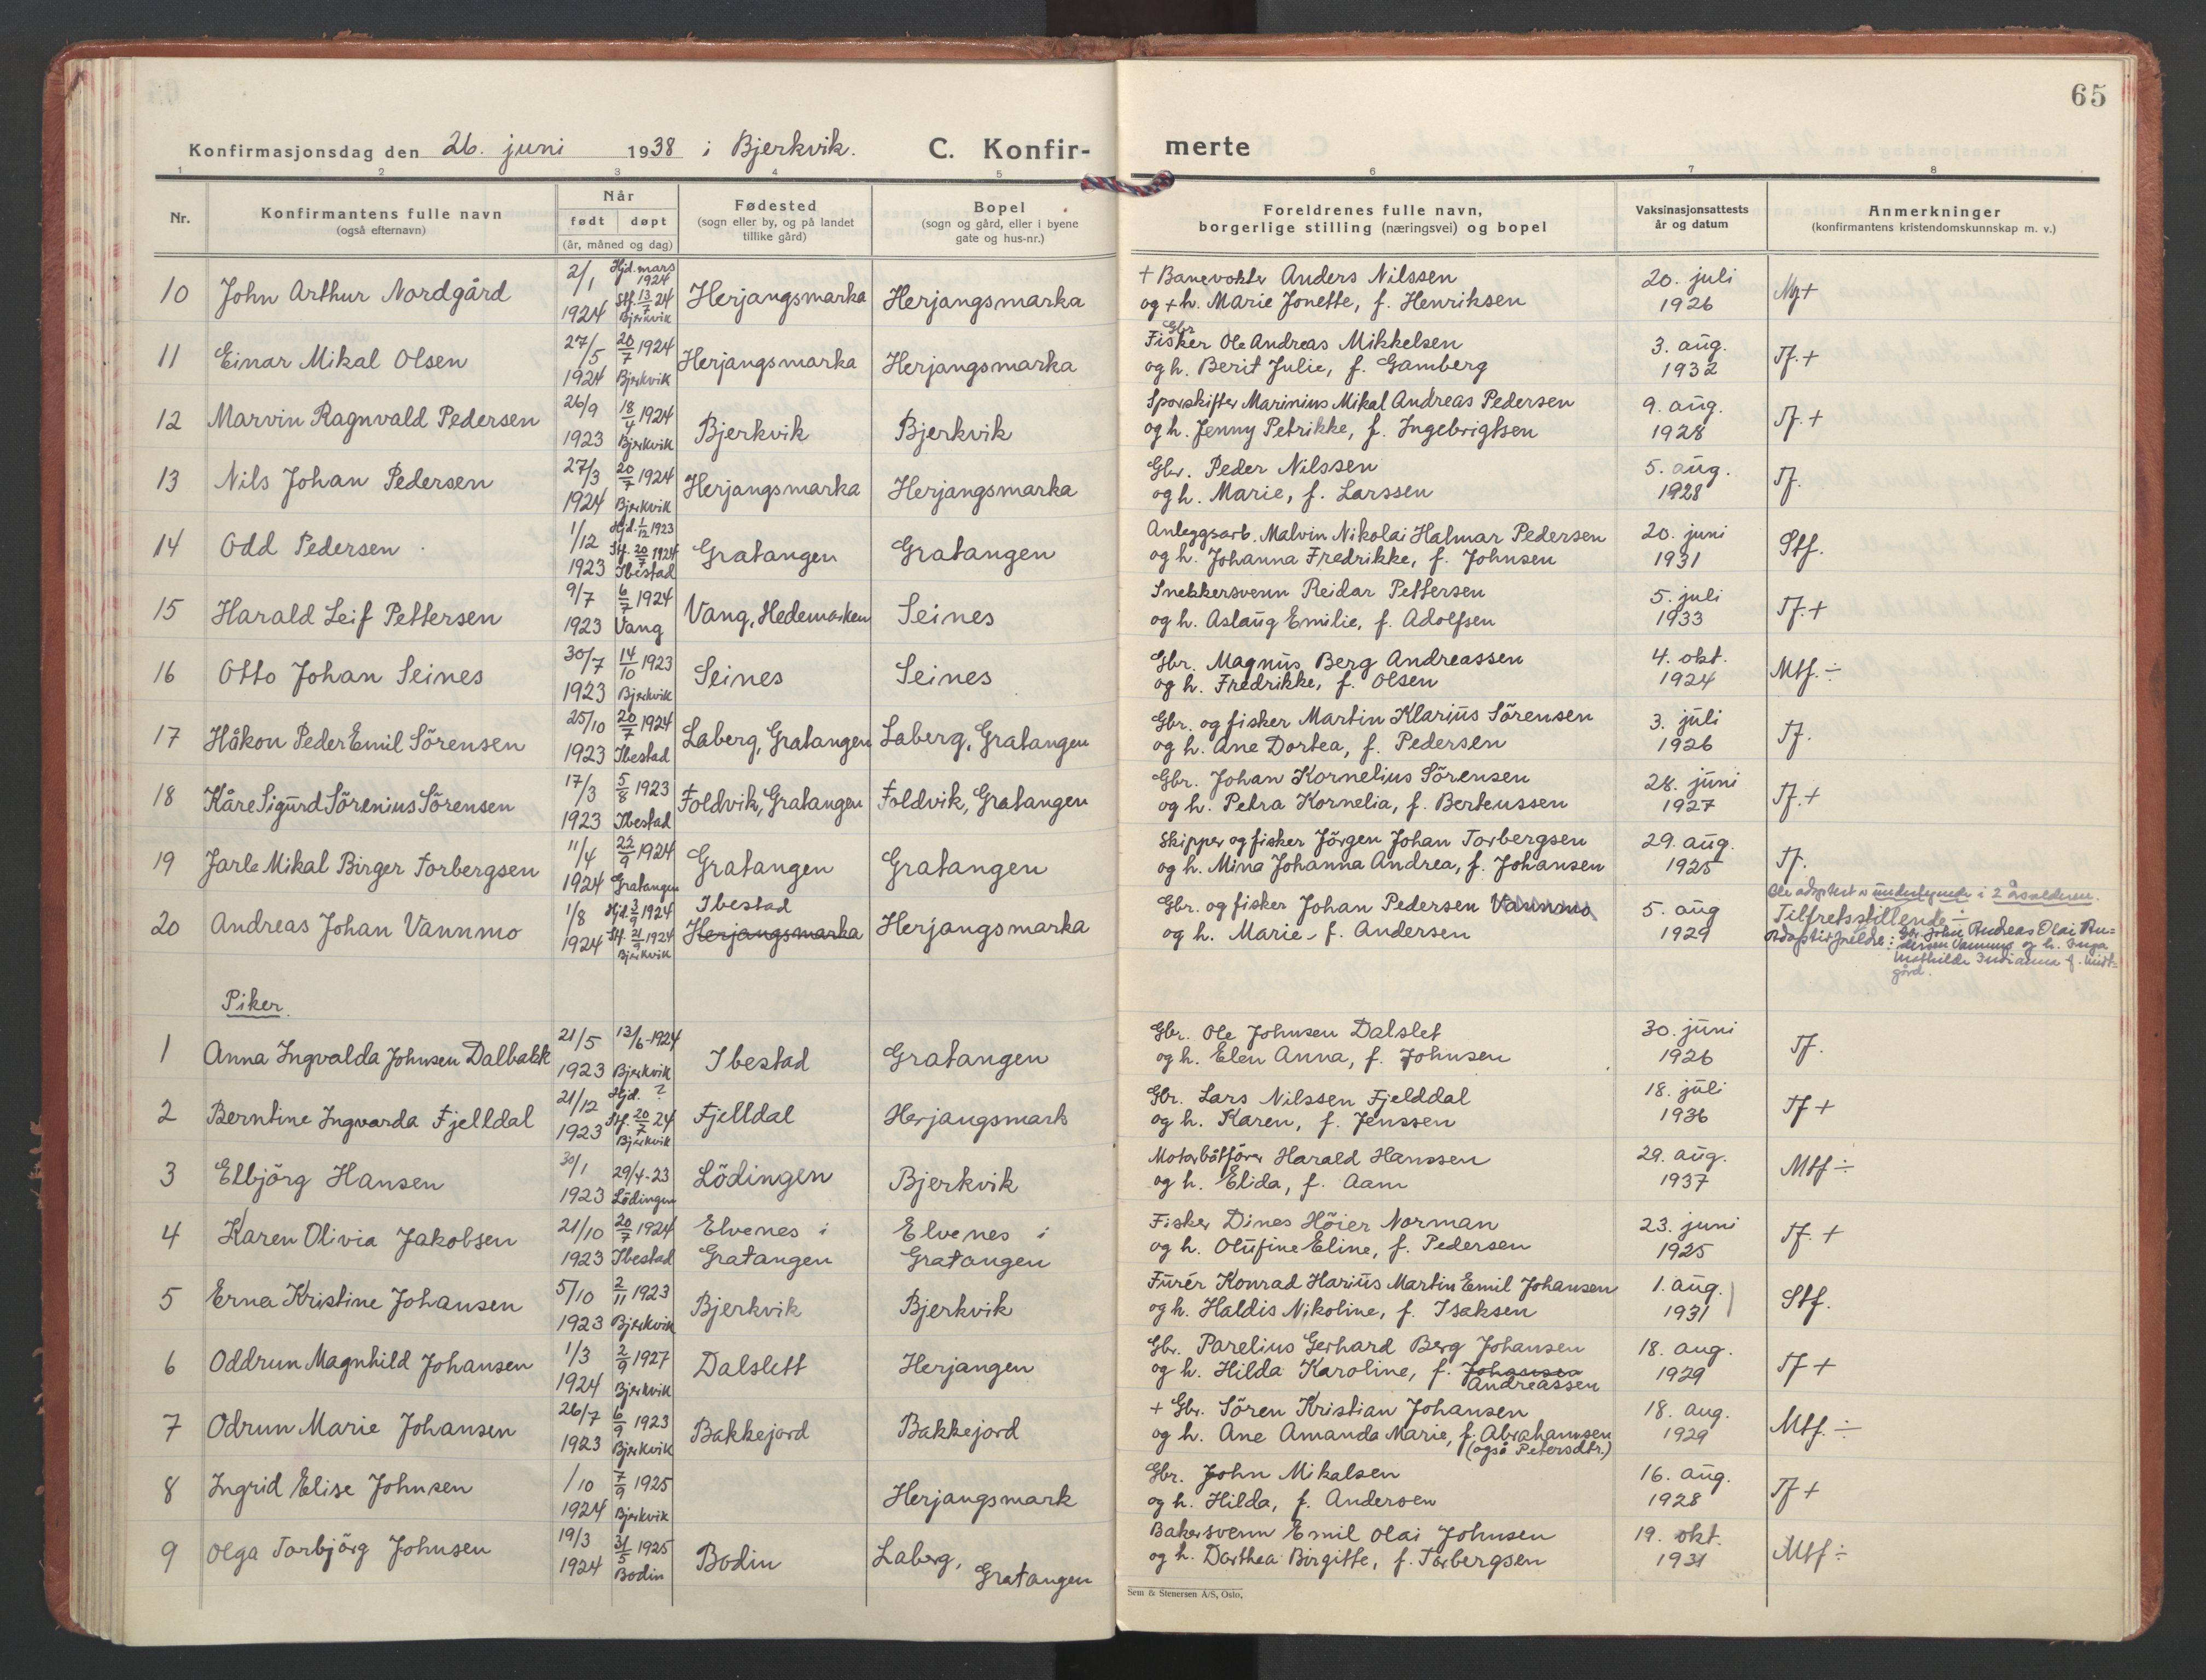 65
Konfirmasjonsdag den 26. juni 1938 i Bjerkvik. C. Konfir-
merte
1 2 3 4 5 6 7 8
Nr.
Konfirmantens fulle navn
(også efternavn)
Når
født døpt
(år, måned og dag)
Fødested
(sogn eller by, og på landet
tillike gård)
Bopel
(sogn og gård, eller i byene
gate og hus-nr.)
Foreldrenes fulle navn,
borgerlige stilling (næringsvei) og bopel
Vaksinasjonsattests
år og datum
Anmerkninger
(konfirmantens kristendomskunnskap m. v.)
10 John Arthur Nordgård 2/1 1924 Hjd. mars 1924 Stf. 13/7 24 Bjerkvik Herjangsmarka Herjangsmarka
+ Banevokter Anders Nilssen
og + h. Marie Jonette, f. Henriksen
20. juli 1926
Mg+
11 Einar Mikal Olsen 27/5 1924 20/7 1924 Bjerkvik Herjangsmarka Herjangsmarka
Gbr
Fisker Ole Andreas Mikkelsen
og h. Berit Julie, f. Gamberg
3. aug. 1932
Tf. +
12 Marvin Ragnvald Pedersen 26/9 1923 18/4 1924 Bjerkvik Bjerkvik Bjerkvik
Sporskifter Marinius Mikal Andreas Pedersen
og h. Jenny Petrikke, f. Ingebrigtsen
9. aug. 1928
Tf. +
13 Nils Johan Pedersen 27/3 1924 20/7 1924 Bjerkvik Herjangsmarka Herjangsmarka
Gbr. Peder Nilssen
og h. Marie, f. Larssen
5. aug. 1928
Tf.
14 Odd Pedersen 1/12 1923 Hjd. 1/12 1923 Stf. 20/7 1924 Ibestad Gratangen Gratangen
Anleggsarb. Malvin Nikolai Halmar Pedersen
og h. Johanna Fredrikke, f. Johnsen
20. juni 1931
Stf.
15 Harald Leif Pettersen 9/7 1923 6/7 1924 Vang Vang, Hedemarken Seines
Snekkersvenn Reidar Pettersen
og h. Aslaug Emilie, f. Adolfsen
5. juli 1933
Tf. +
16 Otto Johan Seines 30/7 1923 14/10 1923 Bjerkvik Seines Seines
Gbr. Magnus Berg Andreassen
og h. Fredrikke, f. Olsen
4. okt. 1924
Mtf. ÷
17 Håkon Peder Emil Sörensen 25/10 1923 20/7 1924 Ibestad Laberg, Gratangen Laberg, Gratangen
Gbr. og fisker Martin Klarius Sörensen
og h. Ane Dortea, f. Pedersen
3. juli 1926
Tf.
18 Kåre Sigurd Sörenius Sörensen 17/3 1923 5/8 1923 Ibestad Foldvik, Gratangen Foldvik, Gratangen
Gbr. Johan Kornelius Sörensen
og h. Petra Kornelia, f. Berteussen
28. juni 1927
Tf. +
19 Jarle Mikal Birger Torbergsen 11/4 1924 22/9 1924 Gratangen Gratangen Gratangen
Skipper og fisker Jörgen Johan Torbergsen
og h. Mina Johanna Andrea, f. Johansen
29. aug. 1925
Tf.
20 Andreas Johan Vannmo 1/8 1924 Hjd. 3/9 1924 Stf. 21/9 1924 Bjerkvik Ibestad Herjangsmarka Herjangsmarka
Gbr. og fisker Johan Pedersen Vannmo
og h. Marie, f. Andersen
5. aug 1929
Ble adoptert i 2 årsalderen.
Tilfretsstillende ÷
Adoptivforeldre: Gbr. John Andreas Olai An-
dersen Vannmo og h. Inga
Mathilde f. Midt-
gård.
Piker.
1 Anna Ingvalda Johnsen Dalbakk 21/5 1923 13/6-1924 Bjerkvik Ibestad Gratangen
Gbr. Ole Johnsen Dalslet
og h. Elen Anna, f. Johnsen
30. juni 1926
Tf.
2 Berntine Ingvarda Fjelldal 21/12 1923 Hjd. ? Stf. 20/7 24 Bjerkvik Fjelldal Herjangsmark
Gbr. Lars Nilssen Fjelddal
og h. Karen, f. Jenssen
18. juli 1936
Tf +
3 Elbjörg Hansen 30/1 1923 29/4-23 Lödingen Lödingen Bjerkvik
Motorbåtförer Harald Hanssen
og h. Elida, f. Aam
29. aug. 1937
Mtf ÷
4 Karen Olivia Jakobsen 21/10 1923 20/7 1924 Ibestad Elvenes i Gratangen Elvenes i Gratangen
Fisker Dines Höier Norman
og h. Olufine Eline, f. Pedersen
23. juni 1925
Tf. +
5 Erna Kristine Johansen 5/10 1923 2/11 1923 Bjerkvik Bjerkvik Bjerkvik
Furér Konrad Harius Martin Emil Johansen
og h. Haldis Nikoline, f. Isaksen
1. aug. 1931
Stf.
6 Oddrun Magnhild Johansen 1/3 1924 2/9 1927 Bjerkvik Dalslett Herjangen
Gbr. Parelius Gerhard Berg Johansen
og h. Hilda Karoline, f. Johansen
Andreassen
18. aug. 1929
Tf +
7 Odrun Marie Johansen 26/7 1923 6/9 1923 Bjerkvik Bakkejord Bakkejord
+ Gbr. Sören Kristian Johansen
og h. Ane Amanda Marie, f. Abrahamsen
(også Petersdtr.)
18. aug. 1929
Mtf. ÷
8 Ingrid Elise Johnsen /10 1924 7/9 1925 Bjerkvik Herjangsmark
Gbr. John Mikalsen
og h. Hilda, f. Andersen
16. aug. 1928
Tf +
9 Olga Torbjörg Johnsen 19/3 1924 31/5 1925 Bodin Bodin Laberg, Gratangen
Bakersvenn Emil Olai Johnsen
og h. Dorthea Birgitte, f. Torbergsen
19. okt. 1931
Mtf ÷
Sem & Stenersen A/S, Oslo,